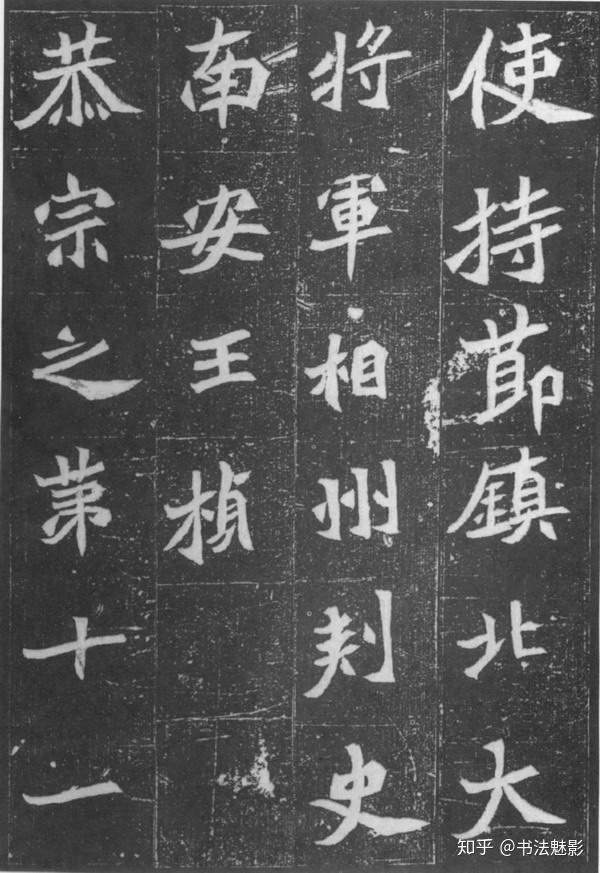 使持節鎮北大
將軍相州刾史
南安王楨
恭宗之苐十一
知乎 @书法魅影